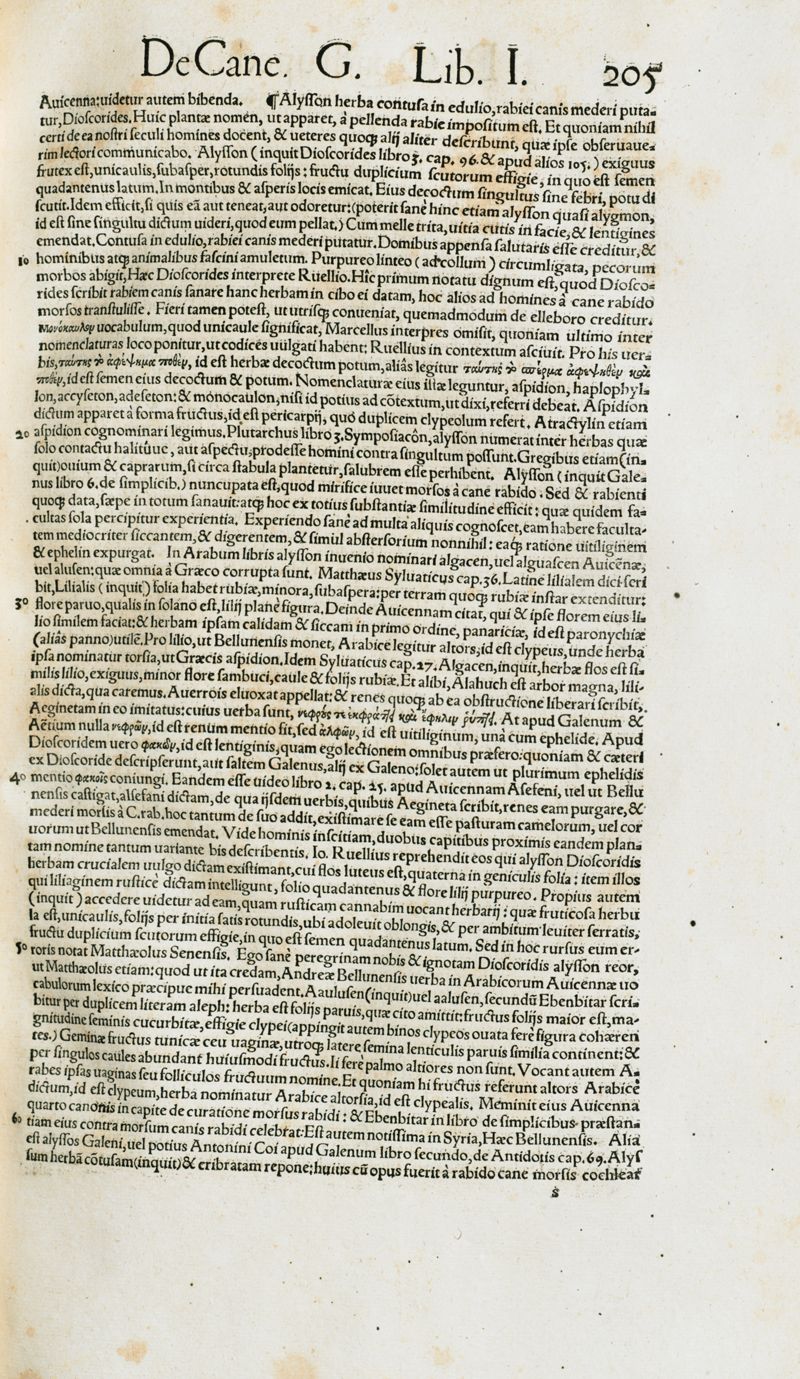 De Cane. G. Lib. I. 205
Auicenna: uidetur autem bibenda. ¶ Alyſſon herba contuſa in edulio, rabiei canis mederi puta-
tur, Dioſcorides. Huic plantæ nomen, ut apparet, à pellenda rabie impoſitum eſt. Et quoniam nihil
certi de ea noſtri ſeculi homines docent, & ueteres quoq; alij aliter deſcribunt, quæ ipſe obſeruaue-
rim lectori communicabo. Alyſſon (inquit Dioſcorides libro 3. cap. 96. & apud alios 105.) exiguus
frutex eſt, unicaulis, ſubaſper, rotundis folijs: fructu duplicium ſcutorum effigie, in quo eſt ſemen
quadantenus latum. In montibus & aſperis locis emicat. Eius decoctum ſingultus ſine febri, potu di
ſcutit. Idem efficit, ſi quis eã aut teneat, aut odoretur: (poterit ſanè hinc etiam alyſſon quaſi alygmon,
id eſt ſine ſingultu dictum uideri, quod eum pellat.) Cum melle trita, uitia cutis in facie, & lentigines
emendat. Contuſa in edulio, rabiei canis mederi putatur. Domibus appenſa ſalutaris eſſe creditur, &
10 hominibus atq; animalibus faſcini amuletum. Purpureo linteo (ad collum) circumligata, pecorum
morbos abigit, Hæc Dioſcorides interprete Ruellio. Hîc primum notatu dignum eſt, quod Dioſco-
rides ſcribit rabiem canis ſanare hanc herbam in cibo ei datam, hoc alios ad homines à cane rabido
morſos tranſtuliſſe. Fieri tamen poteſt, ut utriſq; conueniat, quemadmodum de elleboro creditur.
Μονόκαυλον uocabulum, quod unicaule ſignificat, Marcellus interpres omiſit, quoniam ultimo inter
nomenclaturas loco ponitur, ut codices uulgati habent: Ruellius in contextum aſciuit. Pro his uer-
bis, ταύτης τὸ ἀφέψημα ποθὲν, id eſt herbæ decoctum potum, aliàs legitur ταύτης τὸ σπέρμα ἀφεψηθὲν καὶ
ποθὲν, id eſt ſemen eius decoctum & potum. Nomenclaturæ eius illæ leguntur, aſpidion, haplophyl-
lon, accyſeton, adeſeton: & monocaulon, niſi id potius ad cõtextum, ut dixi, referri debeat. Aſpidion
dictum apparet à forma fructus, id eſt pericarpij, quòd duplicem clypeolum refert. Atractylin etiam
20 aſpidion cognominari legimus. Plutarchus libro 3. Sympoſiacôn, alyſſon numerat inter herbas quæ
ſolo contactu halituue, aut aſpectu, prodeſſe homini contra ſingultum poſſunt. Gregibus etiam (in-
quit) ouium & caprarum, ſi circa ſtabula plantetur, ſalubrem eſſe perhibent. Alyſſon (inquit Gale-
nus libro 6. de ſimplicib.) nuncupata eſt, quod mirifice iuuet morſos à cane rabido. Sed & rabienti
quoq; data, ſæpe in totum ſanauit: atq; hoc ex totius ſubſtantiæ ſimilitudine efficit: quæ quidem fa-
cultas ſola percipitur experientia. Experiendo ſanè ad multa aliquis cognoſcet, eam habere faculta-
tem mediocriter ſiccantem, & digerentem, & ſimul abſterſorium nonnihil: eaq; ratione uitiliginem
& ephelin expurgat. In Arabum libris alyſſon inuenio nominari algacen, uel alguaſcen Auicẽnæ,
uel aluſen: quæ omnia à Græco corrupta ſunt. Matthæus Syluaticus cap. 36. Latinè lilialem dici ſcri
bit, Lilialis (inquit) folia habet rubiæ, minora, ſubaſpera: per terram quoq; rubiæ inſtar extenditur:
30 flore paruo, qualis in ſolano eſt, lilij planè figura. Deinde Auicennam citat, qui & ipſe florem eius li-
lio ſimilem faciat: & herbam ipſam calidam & ſiccam in primo ordine, panariciæ, id eſt paronychiæ
(aliàs panno) utilẽ. Pro lilio, ut Bellunenſis monet, Arabicè legitur altors, id eſt clypeus, unde herba
ipſa nominatur torſia, ut Græcis aſpidion. Idem Syluaticus cap. 27. Algacen, inquit, herbæ flos eſt ſi-
milis lilio, exiguus, minor flore ſambuci, caule & folijs rubiæ. Et alibi, Alahuch eſt arbor magna, lili-
alis dicta, qua caremus. Auerrois eluoxat appellat: & renes quoq; ab ea obſtructione liberari ſcribit,
Aeginetam in eo imitatus: cuius uerba ſunt, νεφρούς τε ἐκφράττει καὶ ἔφηλιν ῥύπτει. At apud Galenum &
Aëtium nulla νεφρῶν, id eſt renum mentio fit, ſed ἀλφῶν, id eſt uitiliginum, una cum ephelide. Apud
Dioſcoridem uero φακῶν, id eſt lentiginis, quam ego lectionem omnibus præfero: quoniam & cæteri
ex Dioſcoride deſcripſerunt, aut ſaltem Galenus, alij ex Galeno: ſolet autem ut plurimum ephelidis
40 mentio φακοῖς coniungi. Eandem eſſe uideo libro 2. cap. 25. apud Auicennam Aſefeni, uel ut Bellu
nenſis caſtigat, alſefani dictam, de qua ijſdem uerbis, quibus Aegineta ſcribit, renes eam purgare, &
mederi morſis à C. rab. hoc tantum de ſuo addit, exiſtimare ſe eam eſſe paſturam camelorum, uel cor
uorum ut Bellunenſis emendat. Vide hominis inſcitiam, duobus capitibus proximis eandem plan-
tam nomine tantum uariante bis deſcribentis. Io. Ruellius reprehendit eos qui alyſſon Dioſcoridis
herbam crucialem uulgo dictam exiſtimant, cui flos luteus eſt, quaterna in geniculis folia: item illos
qui liliaginem ruſticè dictam intelligunt, folio quadantenus & flore lilij purpureo. Propius autem
(inquit) accedere uidetur ad eam, quam ruſticam cannabim uocant herbarij: quæ fruticoſa herbu
la eſt, unicaulis, folijs per initia ſatis rotundis, ubi adoleuit oblongis, & per ambitum leuiter ſerratis,
fructu duplicium ſcutorum effigie, in quo eſt ſemen quadantenus latum. Sed in hoc rurſus eum er-
50 roris notat Matthæolus Senenſis. Ego ſanè peregrinam nobis & ignotam Dioſcoridis alyſſon reor,
ut Matthæolus etiam: quod ut ita credam, Andreæ Bellunenſis uerba in Arabicorum Auicennæ uo
cabulorum lexico præcipue mihi perſuadent. Aaluſen (inquit) uel aaluſen, ſecundũ Ebenbitar ſcri-
bitur per duplicem literam aleph: herba eſt folijs paruis, quæ cito amittit: fructus folijs maior eſt, ma-
gnitudine ſeminis cucurbitæ, effigie clypei (appingit autem binos clypeos ouata ferè figura cohæren
tes.) Geminæ fructus tunicæ ceu uaginæ, utroq; latere ſemina lenticulis paruis ſimilia continent: &
per ſingulos caules abundant huiuſmodi fructus. Ii ferè palmo altiores non ſunt. Vocant autem A-
rabes ipſas uaginas ſeu folliculos fructuum nomine. Et quoniam hi fructus referunt altors Arabicè
dictum, id eſt clypeum, herba nominatur Arabice altorſia, id eſt clypealis. Meminit eius Auicenna
quarto canonis in capite de curatione morſus rabidi: & Ebenbitar in libro de ſimplicibus præſtan-
60 tiam eius contra morſum canis rabidi celebrat: Eſt autem notiſſima in Syria, Hæc Bellunenſis. Alia
eſt alyſſos Galeni, uel potius Antonini Coi apud Galenum libro ſecundo, de Antidotis cap. 69. Alyſ
ſum herbã cõtuſam (inquit) & cribratam repone: huius cũ opus fuerit à rabido cane morſis cochleaſ
s